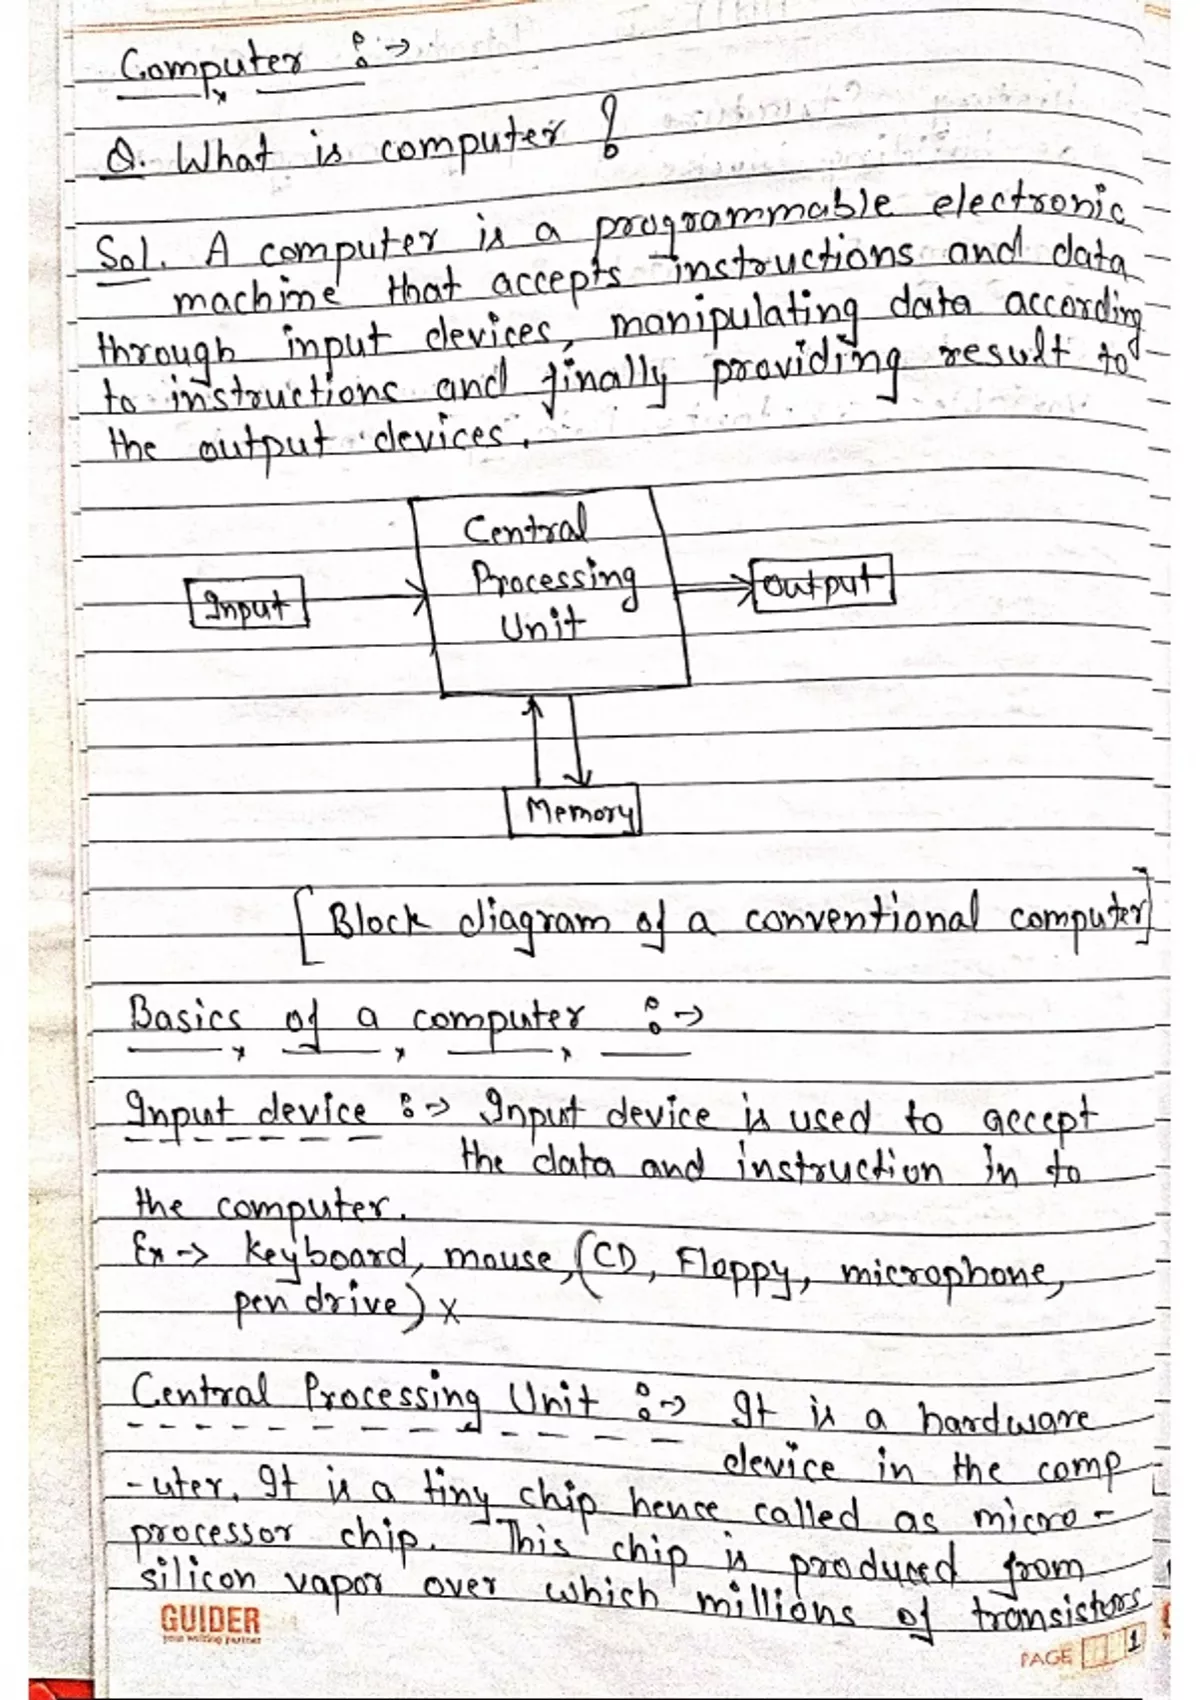 Computer :→
Q. What is computer ?
Sol. A computer is a programmable electronic
machine that accepts instructions and data
through input devices, manipulating data according
to instructions and finally providing result to
the output devices.
Central
Processing
Unit
Input
Output
Memory
[Block diagram of a conventional computer]
Basics of a computer :→
Input device :→ Input device is used to accept
the data and instruction in to
the computer.
Ex → Keyboard, mouse, (CD, Floppy, microphone,
pen drive) x
Central Processing Unit :→ It is a hardware
device in the comp
-uter. It is a tiny chip hence called as micro-
processor chip. This chip is produced from
silicon vapor over which millions of transistors
GUIDER
your writing partner
PAGE 1